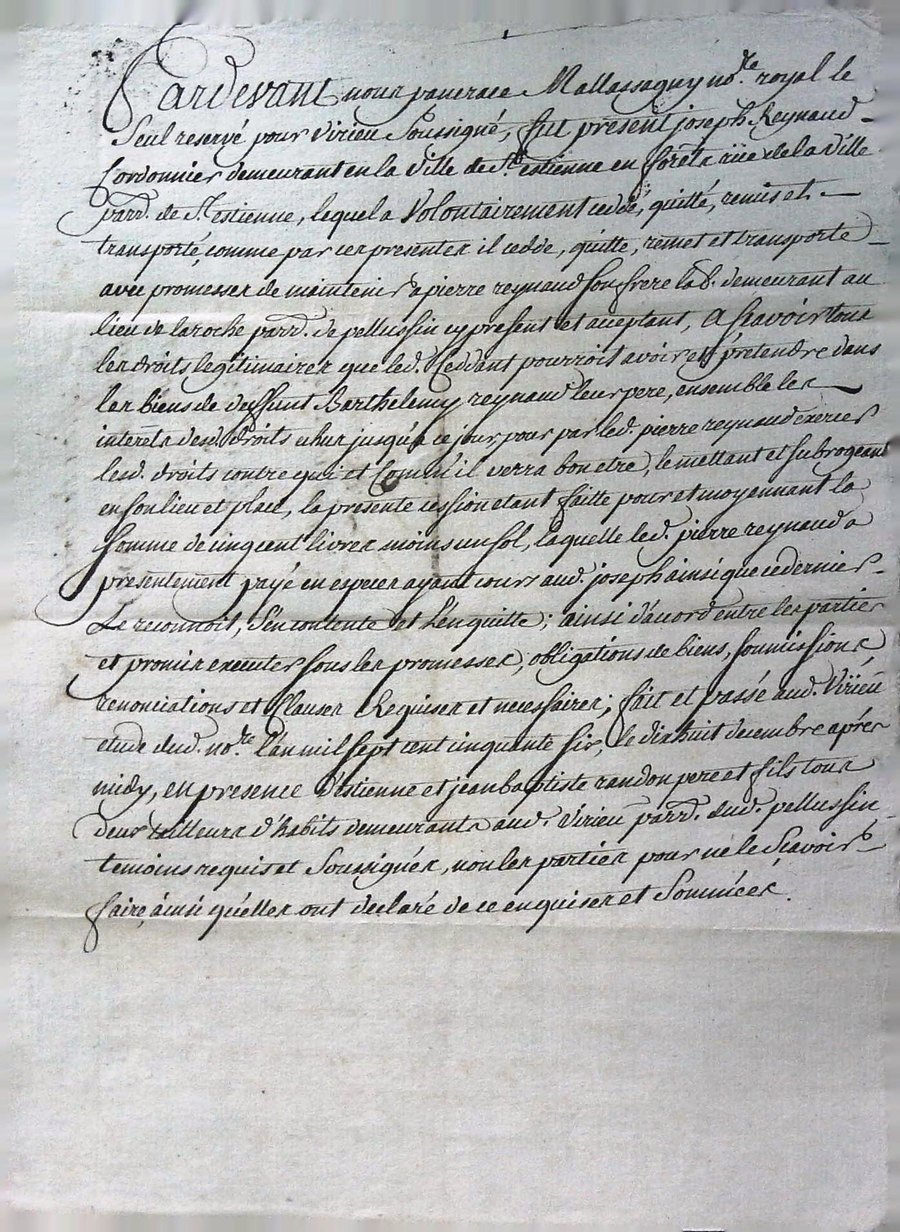 Pardevant nous pancrace Mallassagny no.re royal le
Seul reservé pour Virieu Soussigné, fut present joseph Reynaud
Cordonnier demeurant en la Ville de St. estienne en forets rüe de la Ville
parr. de St. estienne, lequel a Volontairement cedé, quitté, remis et
transporté, comme par ces presentes il cedde, quitte, remet et transporte
avec promesses de maintenir a pierre reynaud son frere lab. demeurant au
lieu de laroche parr. de pellussin cy present et aceptant, A Sçavoir tous
les droits legitimaires que led. Ceddant pourroit avoir et pretendre dans
les biens de deffunt Barthelemy reynaud leur pere, ensemble les
interets desd. droits echus jusqu'a ce jour, pour par led. pierre reynaud exercer
lesd. droits contre qui et Comm'il verra bon etre, le mettant et subrogeant
en son lieu et place, la presente cession etant faitte pour et moyennant la
somme de cinq cent livres moins un sol, laquelle led. pierre reynaud a
presentement payé en especes ayant cours aud. joseph ainsi que ce dernier
Le reconnoit, s'en contente et L'en quitte; ainsi d'acord entre les parties
et promis executer sous les promesses, obligations de biens, soumissions
renonciations et Clauses Requises et necessaires; fait et passé aud. Virieu
etude dud. no.re L'an mil sept cent cinquante six, le dix huit decembre après
midy, en presence d'Estienne et jean baptiste randon pere et fils tous
deux tailleurs d'habits demeurants aud. Virieu parr. dud. pellussin
temoins requis et Soussignés, non les parties pour ne le Sçavoir
faire, ainsi qu'elles ont declaré de ce enquises et Sommées.